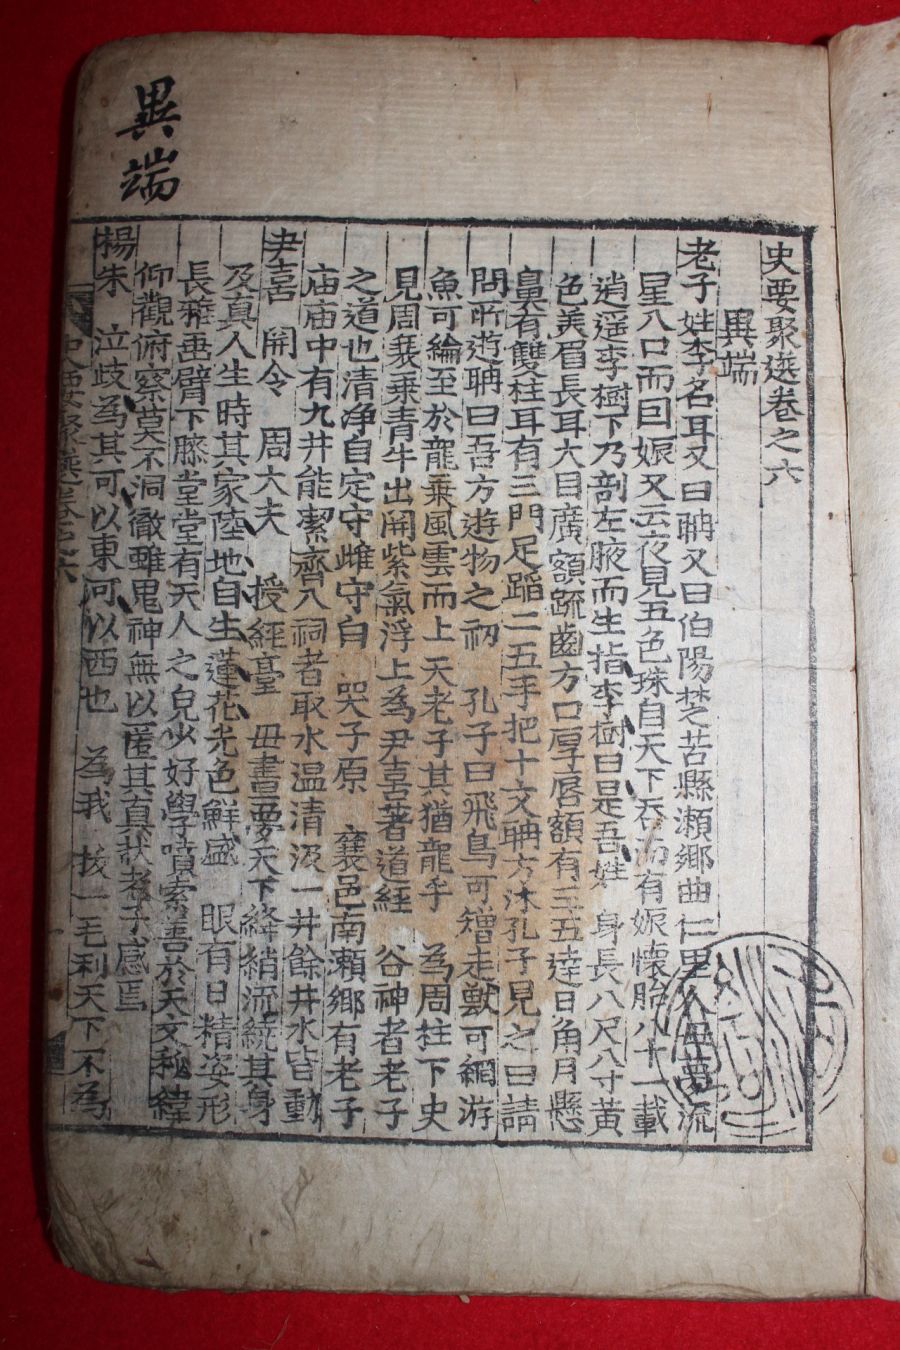 異端
史要聚選卷之六
異端
老子姓李名耳又曰聃又曰伯陽楚苦縣瀬鄉曲仁里人母夢流
星入口而囙娠又云夜見五色珠自天下吞而有娠懷胎八十一載
逍遥李樹下乃剖左腋而生指李樹曰是吾姓 身長八尺八寸黃
色美眉長耳大目廣額䟽齒方口厚唇額有三五達日角月懸
鼻有雙柱耳有三門足蹈二五手把十文聃方沐孔子見之曰請
問所遊聃曰吾方遊物之初 孔子曰飛鳥可矰走獸可網游
魚可綸至於龍乗風雲而上天老子其猶龍乎 為周柱下史
見周衰乗青牛出関紫氣浮上為尹喜著道經 谷神者老子
之道也清净自定守雌守白 哭子原 襄邑南瀬鄉有老子
庙庙中有九井能潔齊入祠者取水温清汲一井餘井水皆動
尹喜 関令 周大夫 授經臺 母晝夢天下絳綃流繞其身
及真人生時其家陸地自生蓮花光色鮮盛 眼有日精姿形
長雅垂臂下膝堂堂有天人之皃少好學墳索善於天文秘緯
仰觀俯察莫不洞徹雖鬼神無以匿其真狀老子感焉
楊朱 泣歧為其可以東可以西也 為我 拔一毛利天下不為
史要聚選卷之六